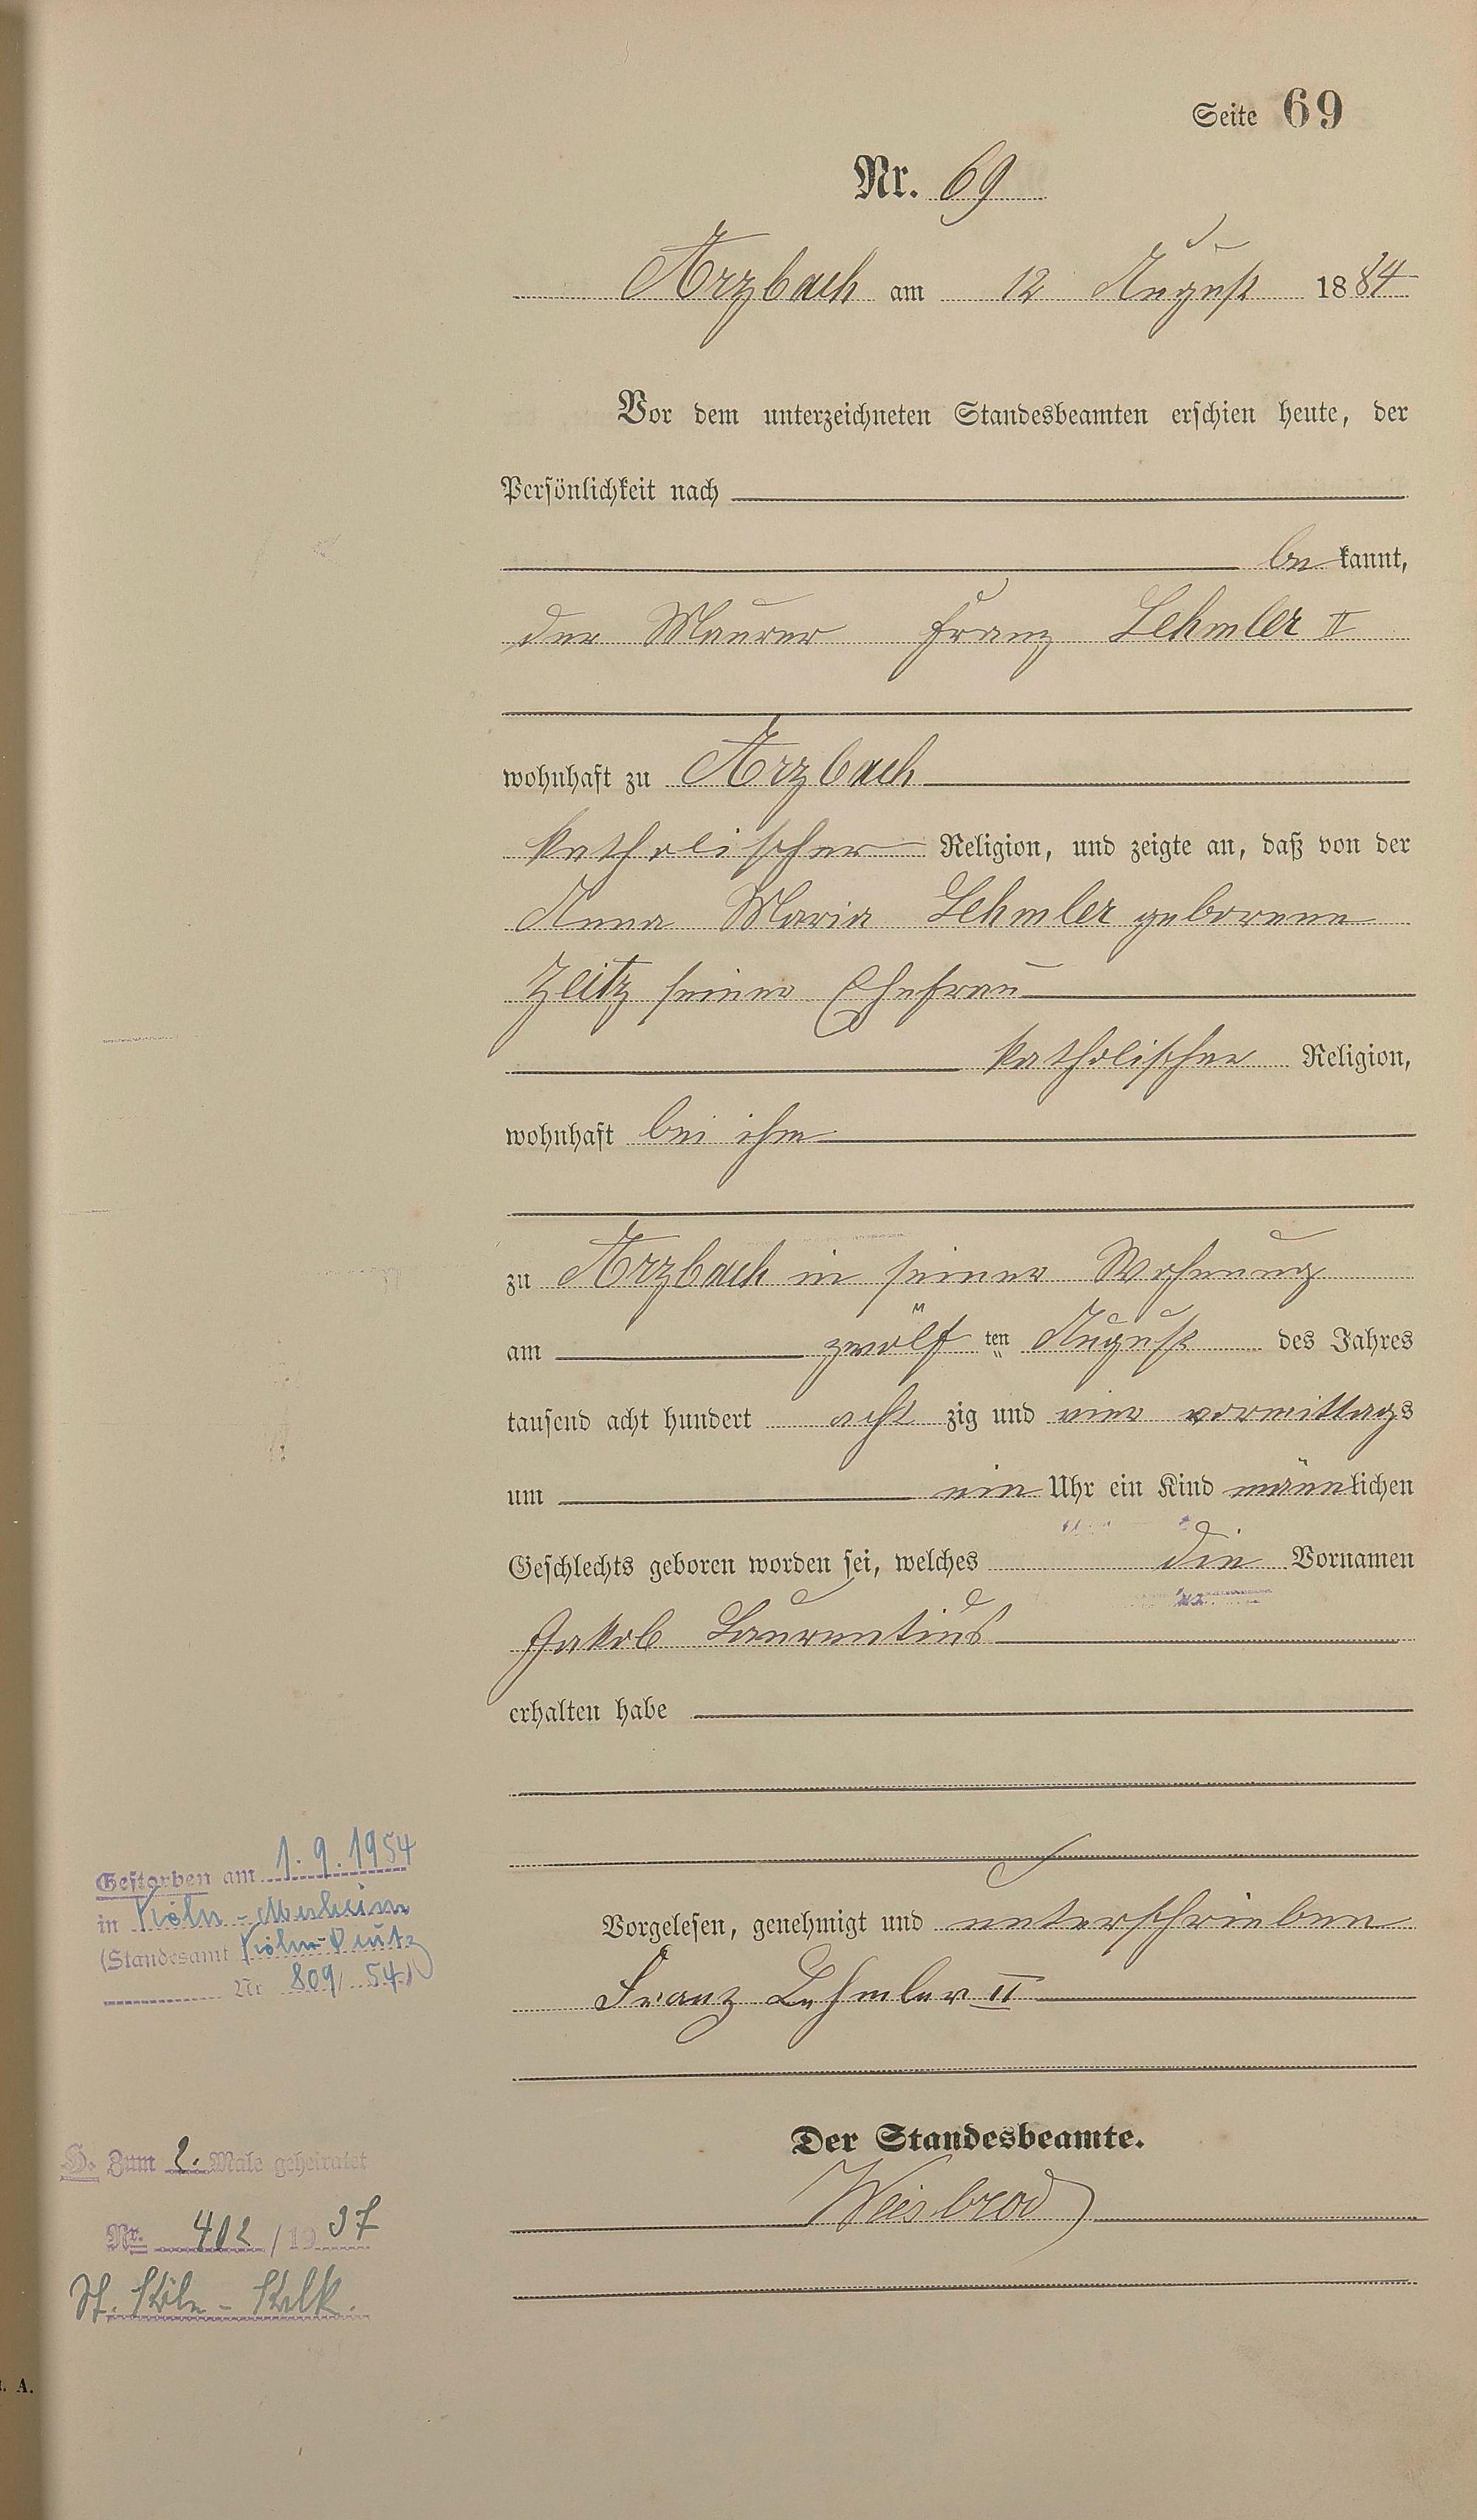 Seite 69
Nr. 69
Arzbach am 12 August 1884
Vor dem unterzeichneten Standesbeamten erschien heute, der
Persönlichkeit nach
be kannt,
der Maurer Franz Lehmler II
wohnhaft zu Arzbach
katholischer Religion, und zeigte an, daß von der
Anna Maria Lehmler geborene
Zeitz seiner Ehefrau
katholischer Religion,
wohnhaft bei ihm
zu Arzbach in seiner Wohnung
am zwölf ten August des Jahres
tausend acht hundert acht zig und vier vormittags
um ein Uhr ein Kind männlichen
Geschlechts geboren worden sei, welches die Vornamen
Jakob Laurentius
erhalten habe
Vorgelesen, genehmigt und unterschrieben
Franz Lehmler II
Der Standesbeamte.
Weisbrod
Gestorben am 1.9.1954
in Köln-Merheim
(Standesamt Köln-Deutz
Nr 809/54)
H. Zum 2. Male geheiratet
Nr. 402/1937
St. Köln-Kalk.
. A.